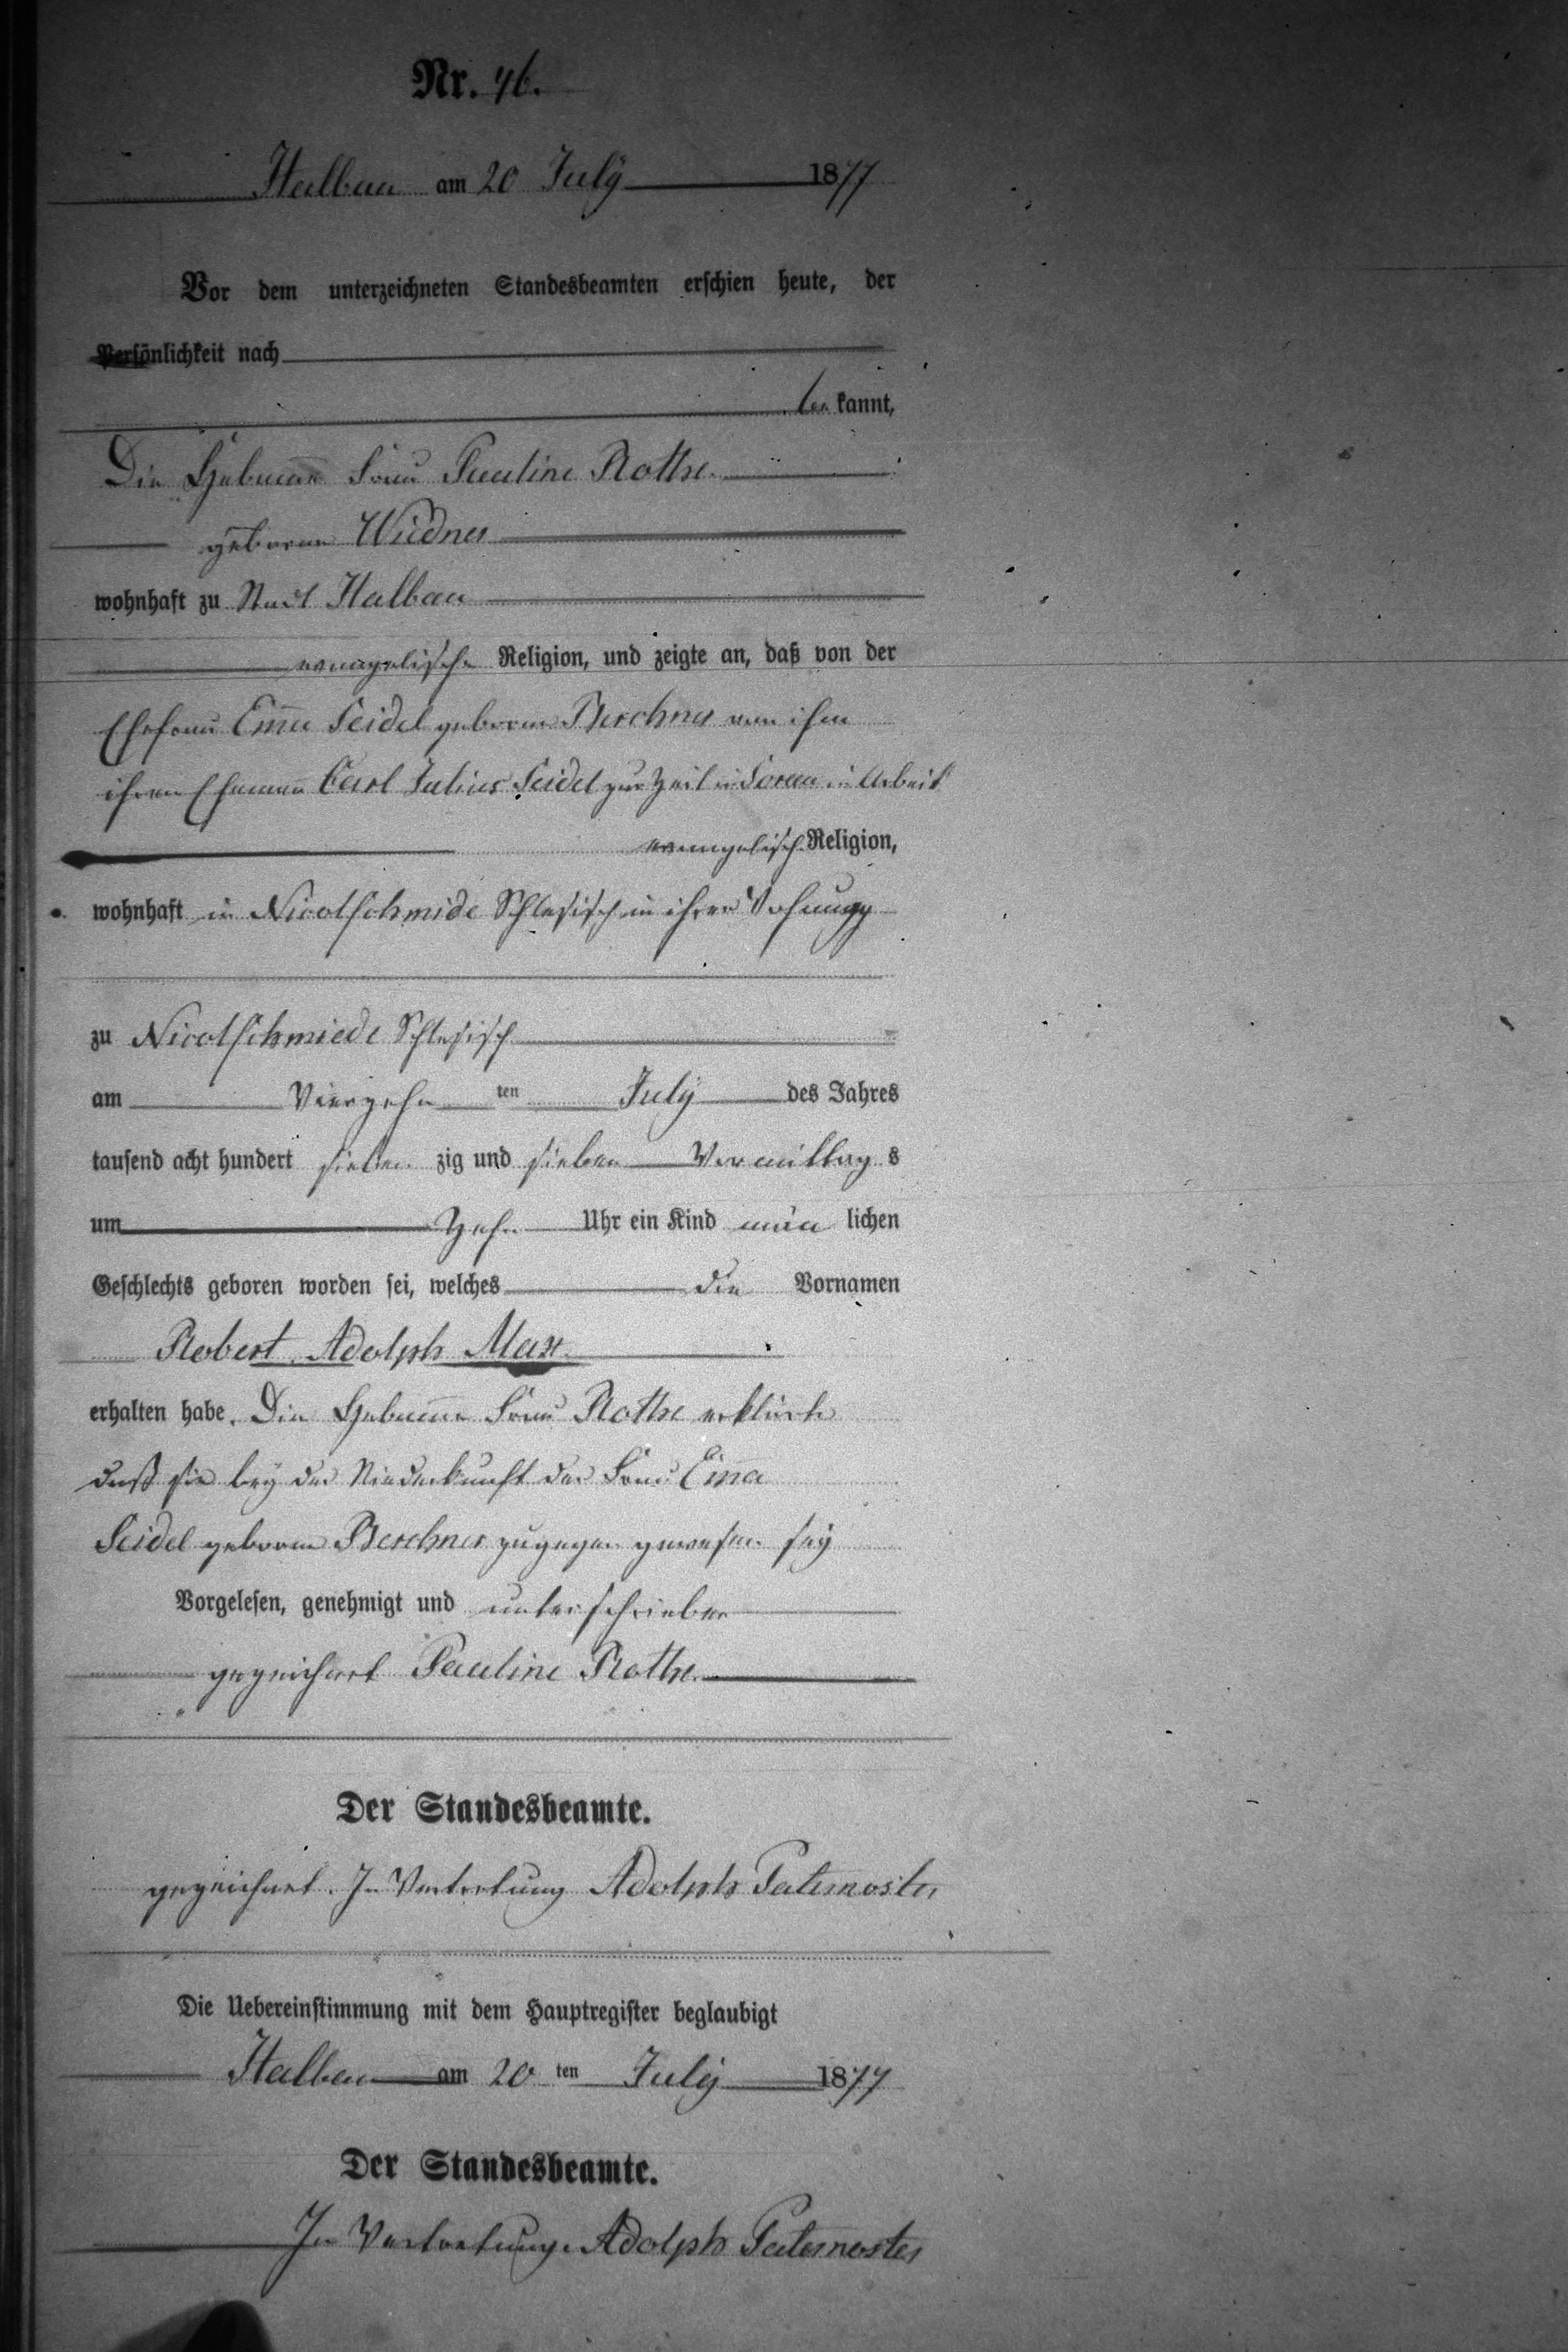 Nr. 46.
Halbau am 20 July 1877
Vor dem unterzeichneten Standesbeamten erschien heute, der
Persönlichkeit nach
be kannt,
Die Hebamme Frau Pauline Rothe
geborene Widner
wohnhaft zu Stadt Halbau
evangelische Religion, und zeigte an, daß von der
Ehefrau Emma Seidel geborene Berchner von ihm
ihren Ehemann Carl Julius Seidel zur Zeit in Sorau in Arbeit
evangelisch Religion,
wohnhaft in Nicolschmide Schlesisch in ihrer Wohnung
zu Nicolschmiede Schlesisch
am Vierzehn ten July des Jahres
tausend acht hundert sieben zig und sieben Vormittag s
um Zehn Uhr ein Kind män lichen
Geschlechts geboren worden sei, welches die Vornamen
Robert Adolph Max
erhalten habe. Die Hebamme Frau Rothe erklärte
daß sie bey der Niederkunft der Frau Emma
Seidel geborene Berchner zugegen gewesen sey
Vorgelesen, genehmigt und unterschrieben
gezeichnet Pauline Rothe
Der Standesbeamte.
gezeichnet. In Vertretung Adolph Paternoster
Die Uebereinstimmung mit dem Hauptregister beglaubigt
Halbau am 20 ten July 1877
Der Standesbeamte.
In Vertretung. Adolph Paternoster